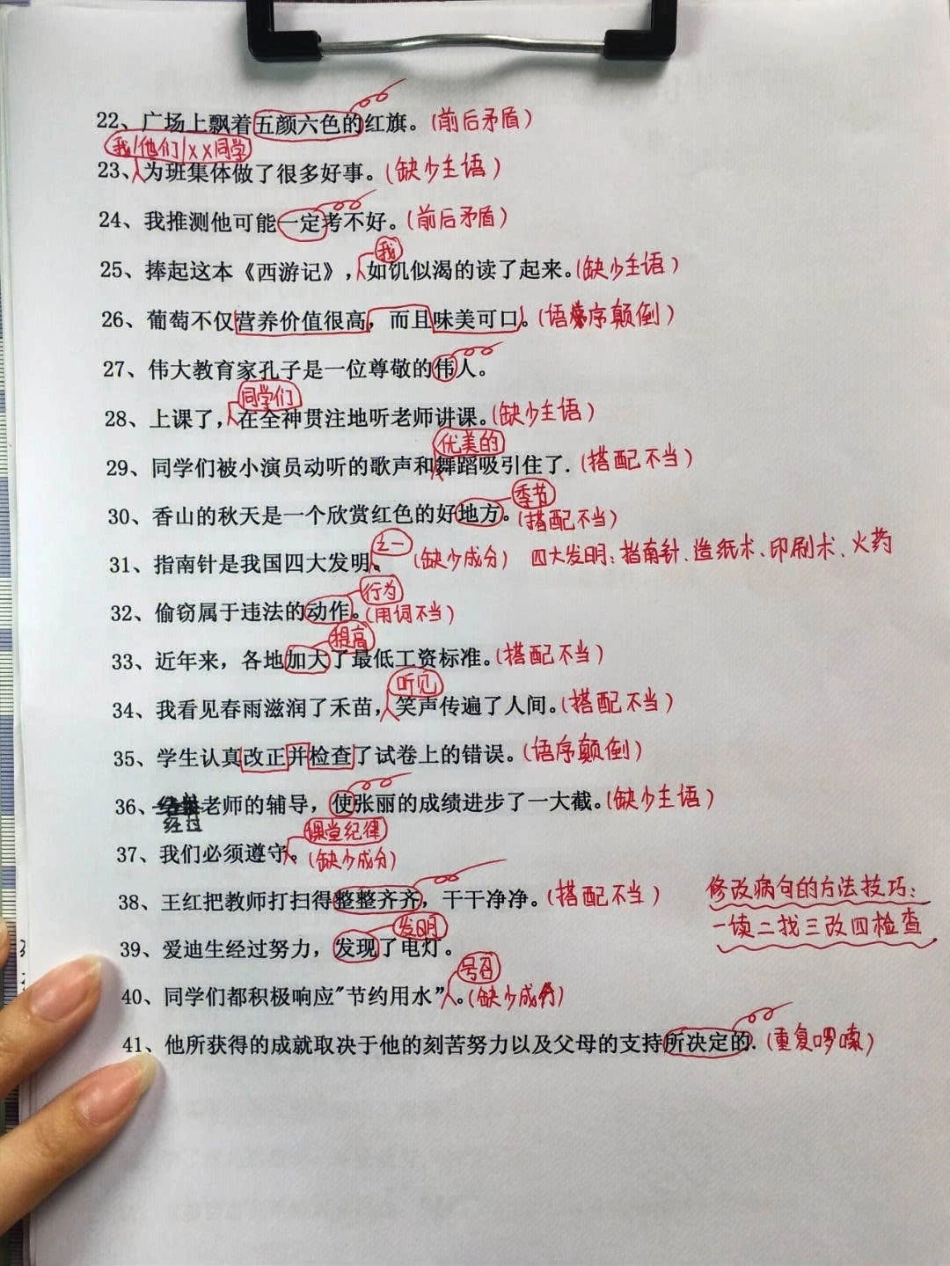 22、广场上飘着五颜六色的红旗。(前后矛盾)
我/他们/XX同学
23、为班集体做了很多好事。(缺少主语)
24、我推测他可能一定考不好。(前后矛盾)
我
25、捧起这本《西游记》,如饥似渴的读了起来。(缺少主语)
26、葡萄不仅营养价值很高,而且味美可口。(语序颠倒)
27、伟大教育家孔子是一位尊敬的伟人。
同学们
28、上课了,在全神贯注地听老师讲课。(缺少主语)
优美的
29、同学们被小演员动听的歌声和舞蹈吸引住了.(搭配不当)
季节
30、香山的秋天是一个欣赏红色的好地方。(搭配不当)
之一
31、指南针是我国四大发明。(缺少成分) 四大发明:指南针、造纸术、印刷术、火药
行为
32、偷窃属于违法的动作。(用词不当)
提高
33、近年来,各地加大了最低工资标准。(搭配不当)
听见
34、我看见春雨滋润了禾苗,笑声传遍了人间。(搭配不当)
35、学生认真改正并检查了试卷上的错误。(语序颠倒)
36、老师的辅导,使张丽的成绩进步了一大截。(缺少主语)
经过
课堂纪律
37、我们必须遵守。(缺少成分)
38、王红把教师打扫得整整齐齐,干干净净。(搭配不当)
修改病句的方法技巧:
一读二找三改四检查
发明
39、爱迪生经过努力,发现了电灯。
号召
40、同学们都积极响应"节约用水”。(缺少成分)
41、他所获得的成就取决于他的刻苦努力以及父母的支持所决定的.(重复啰嗦)